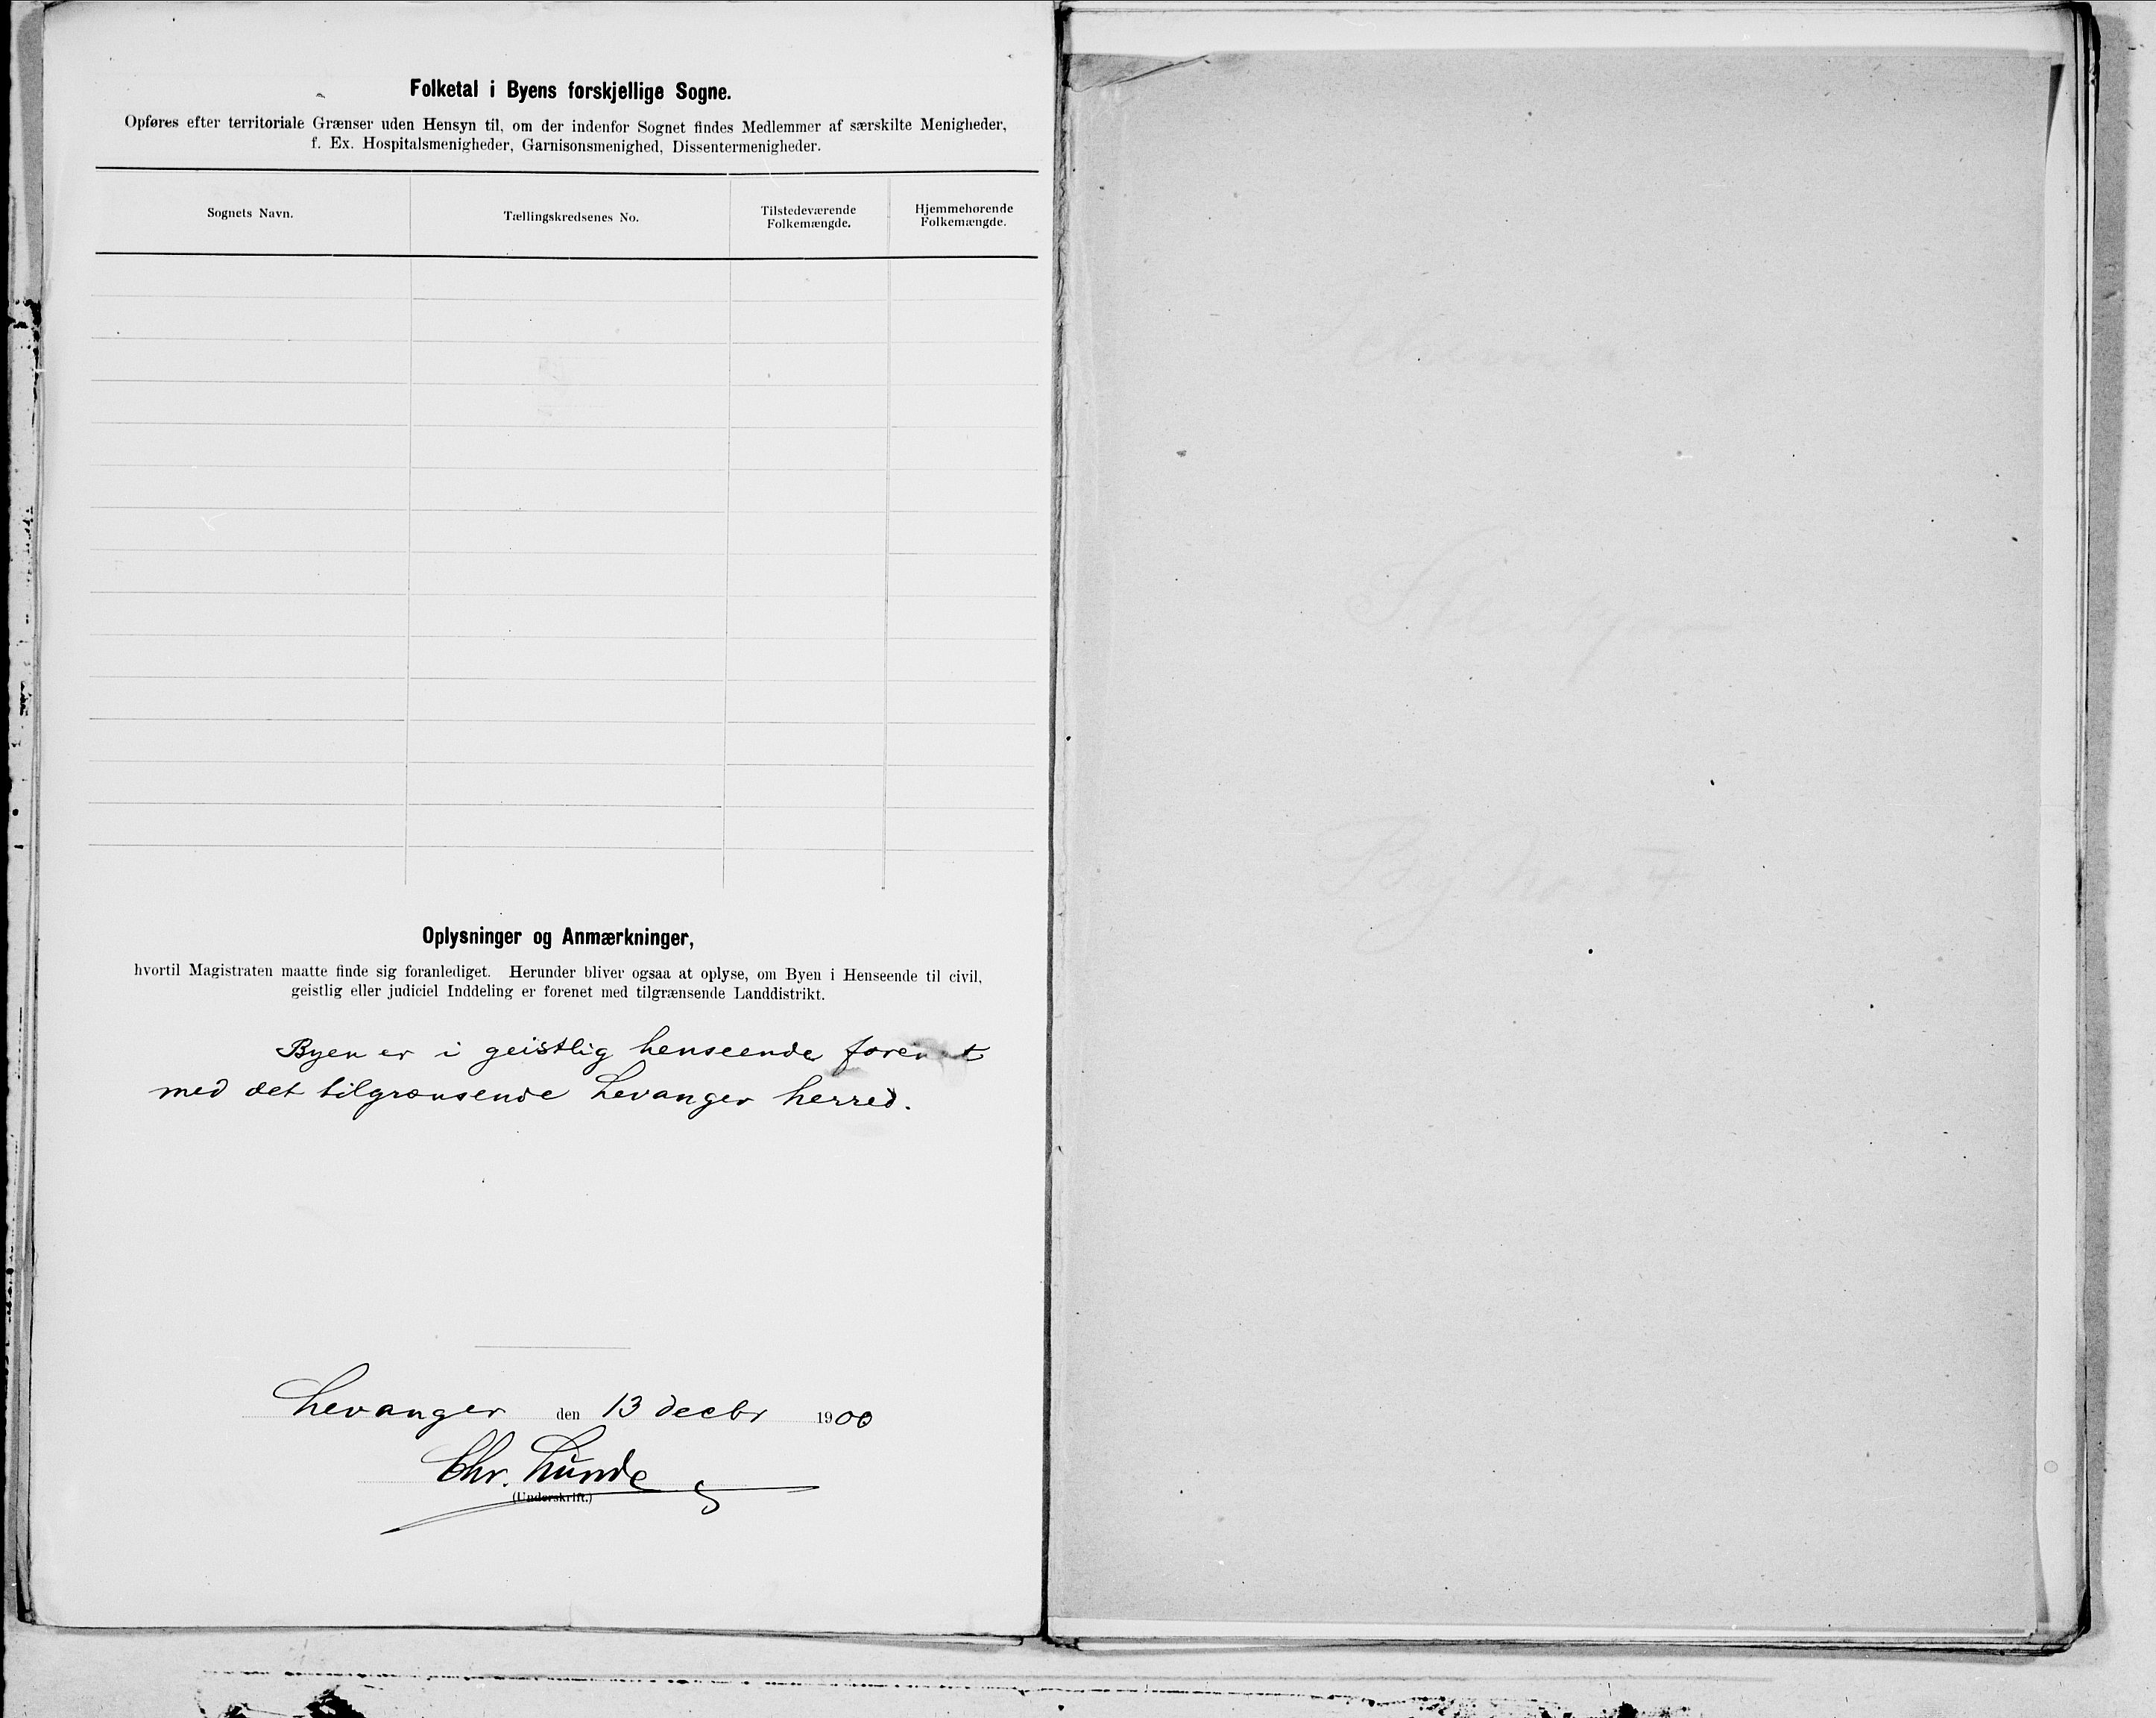 Folketal i Byens forskjellige Sogne.
Opføres efter territoriale Grænser uden Hensyn til, om der indenfor Sognet findes Medlemmer af særskilte Menigheder,
f. Ex. Hospitalsmenigheder, Garnisonsmenighed, Dissentermenigheder.
Sognets Navn.
Tællingskredsenes No.
Tilstedeværende
Folkemængde.
Hjemmehørende
Folkemængde.
Oplysninger og Anmærkninger,
hvortil Magistraten maatte finde sig foranlediget. Herunder bliver ogsaa at oplyse, om Byen i Henseende til civil,
geistlig eller judiciel Inddeling er forenet med tilgrænsende Landdistrikt.
Byen er i geistlig henseende forenet
med det tilgrænsende Levanger herred.
Levanger den 13 decbr 1900
Chr. Lunde
(Underskrift.)
Schema
Stenkjær
By No. 54